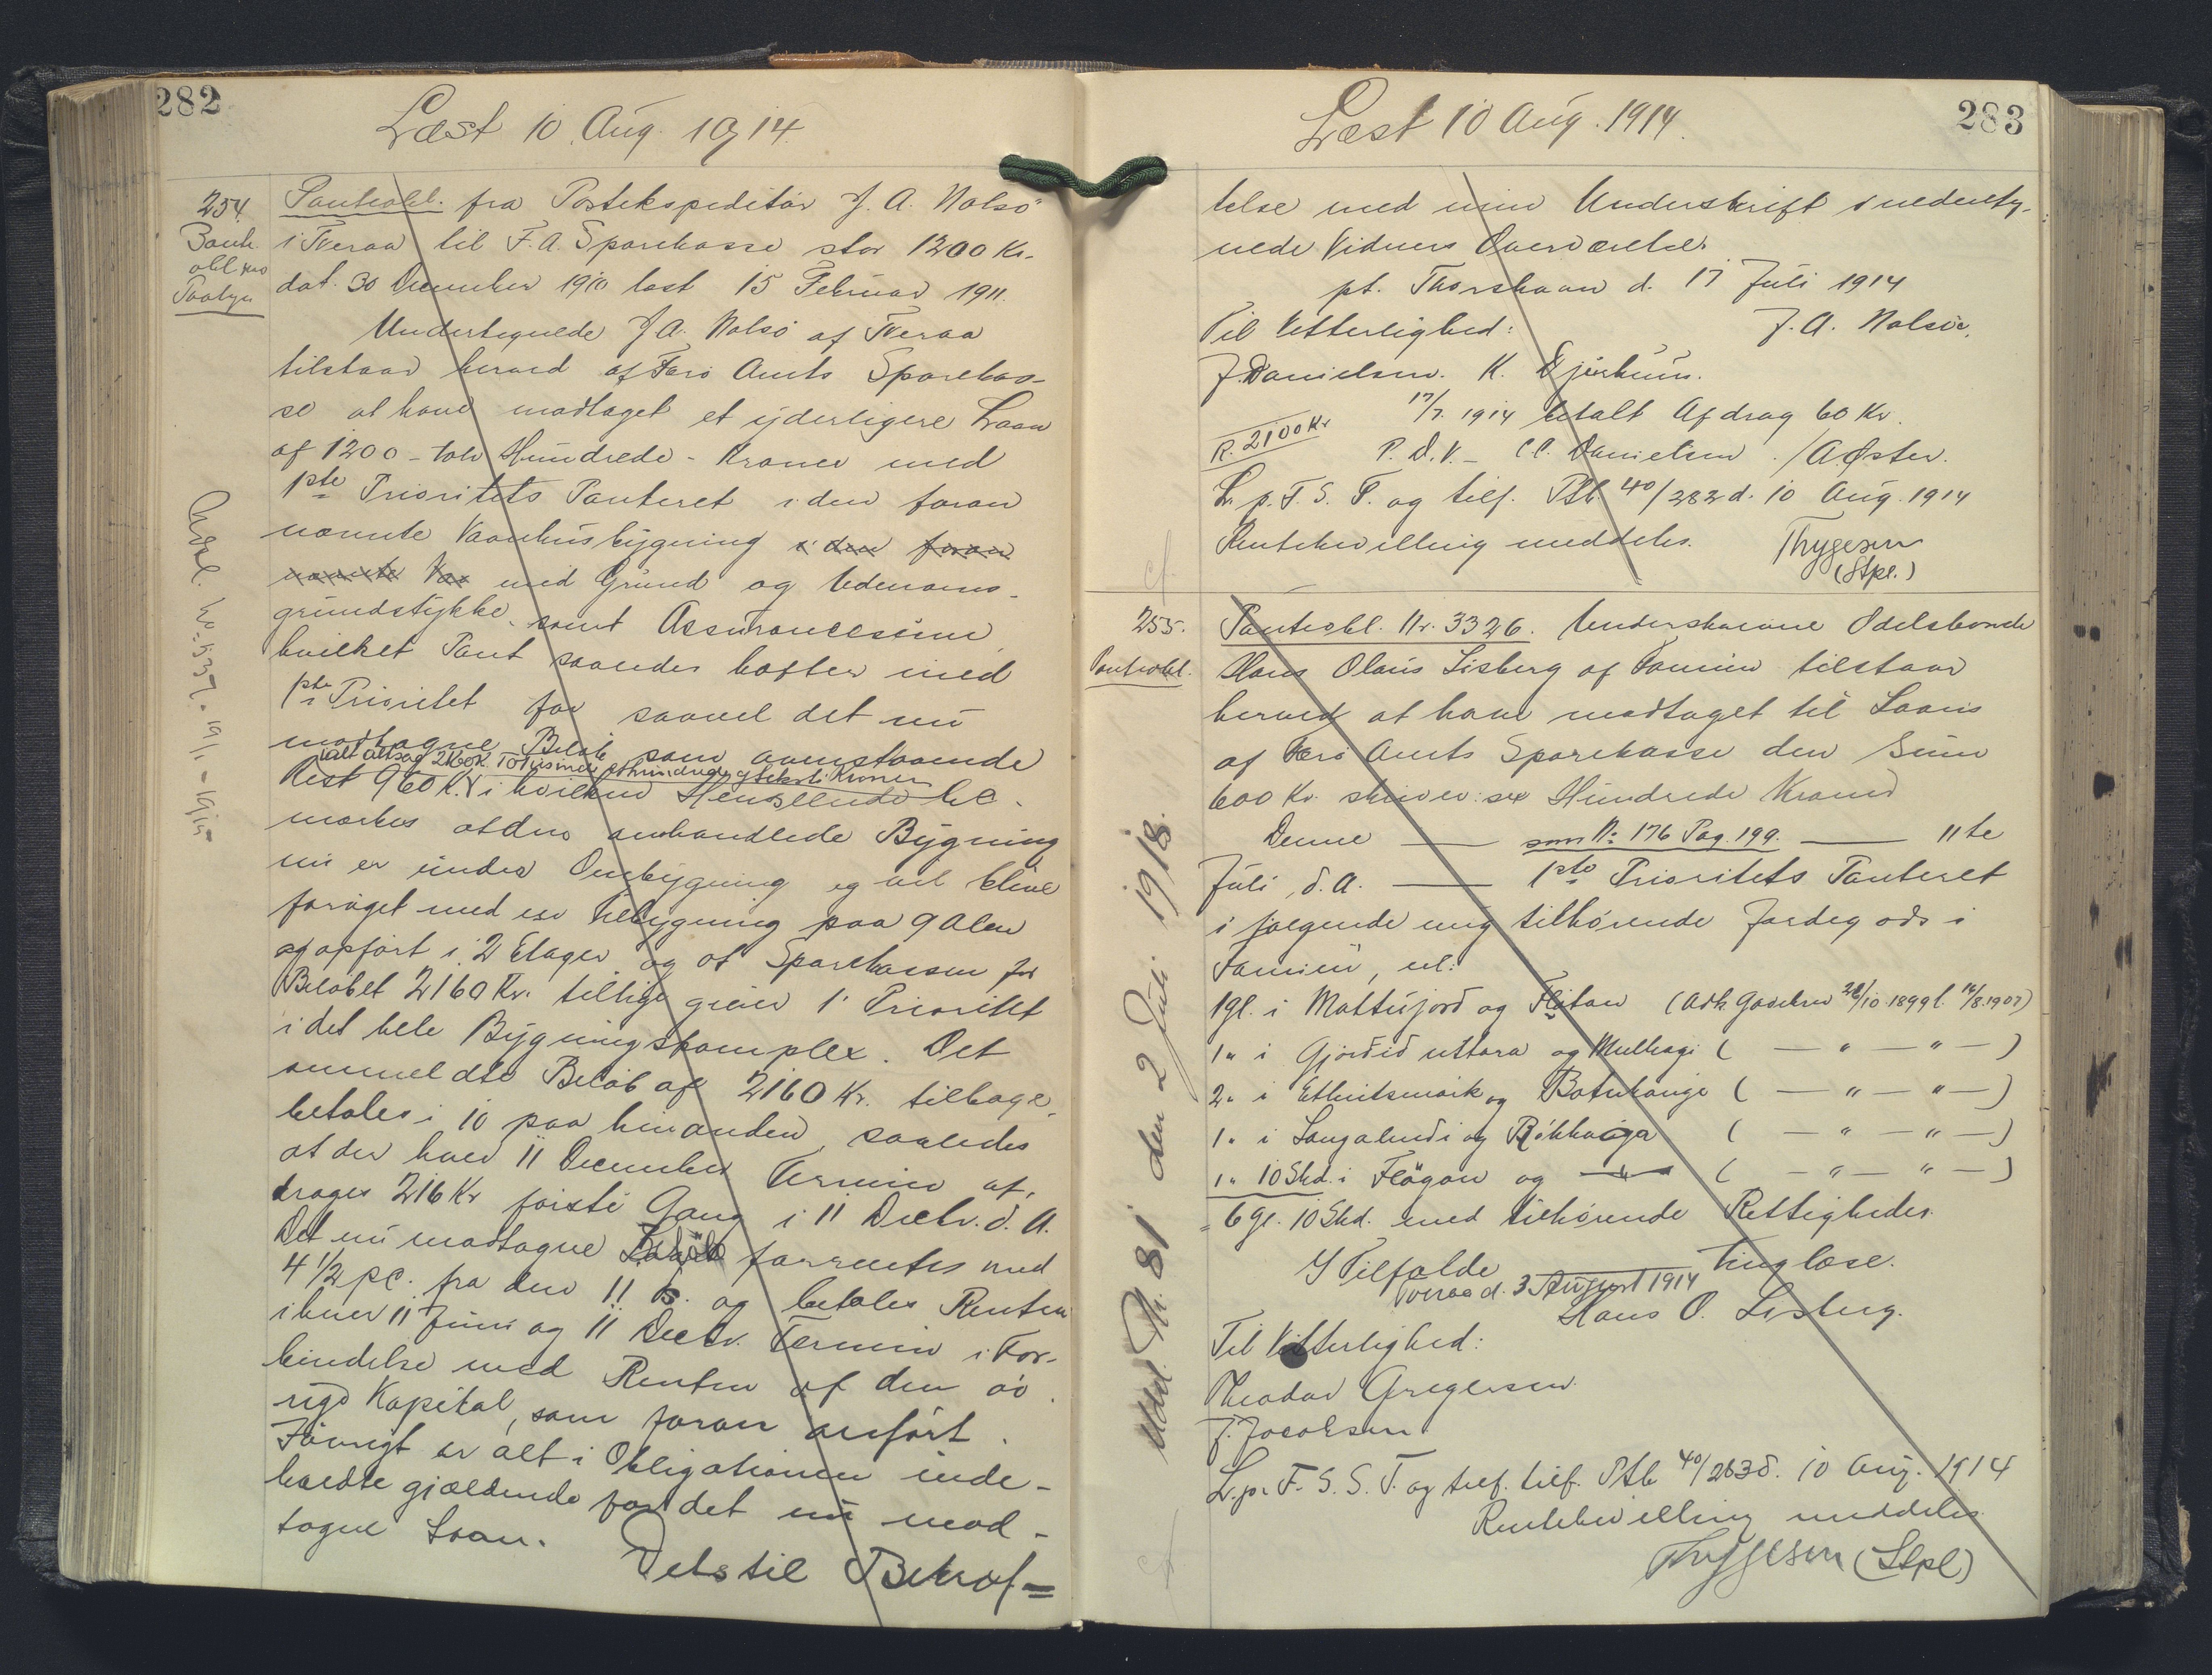 282
Læst 10. Aug. 1914.
254.
Pant-
obl. 
Paategn
Pantobl. fra Postekspeditör J. A. Nolsö
i Tveraa til F. A. Sparekasse stor 1200 Kr.
dat. 30 December 1910 læst 15 Februar 1911.
Undertegnede J A. Nolsö af Tveraa
tilstaar herved af Færö Amts Sparekas-
se at have modtaget et yderligere Laan
af 1200 - tolv Hundrede - Kroner med
1ste Prioritets Panteret i den foran
nævnte Vaanhusbygning i den foran
nævnte Vaa med Grund og Udenoms-
grundstykke, samt Assurancesum,
hvilket Pant saaledes hæfter med
1ste Prioritet for saavel det nu
modtagne Beløb som ovenstaaende
ialt altsaa 2160 K. Totusinde ethundrede og seksti Kroner
Rest 960 K. i hvilken Henseende be-
mærkes at den omhandlede Bygning
nu er under Ombygning og vil blive
forøget med en Tilbygning paa 9 Alen
og opført i 2 Etager og at Sparekassen for
Beløbet 2160 Kr. tillige giver 1' Prioritet
i det hele Bygningskomplex. Det
anmeldte Beløb af 2160 Kr. tilbage-
betales i 10 paa hinanden, saaledes
at der hver 11 December Termin af-
drages 216 Kr første Gang i 11 Decbr. d. A.
Det nu modtagne Beløb forrentes med
4 1/2 pc. fra den 11 ds. og betales Renten
i hver 11 Juni og 11 Decbr. Termin i For-
bindelse med Renten af den øv-
rige Kapital, som foran anført.
Iøvrigt er alt i Obligationen inde-
holdte gjældende for det nu mod-
tagne Laan.
Dets til Bekræf=
283
Læst 10 Aug. 1914.
telse med min Underskrift i undertg-
nede Vidners Overværelse.
pt. Thorshavn d. 17 Juli 1914
Til Vitterlighed: J. A. Nolsöe.
J. Danielsen. K. Djurhuus.
17/7. 1914 betalt Afdrag 60 Kr.
R. 2100 Kr
P. D. V. - CC. Danielsen /A Øster.
L. p. F. S. T. og tilf. Ptb. 40/282 d. 10 Aug. 1914
Rentebevilling meddeles. Thygesen
(Stpl.)
255.
Pantobl.
Pantobl. Nr. 3326. Underskrevne Odelsbonde
Hans Olaus Lisberg af Famien tilstaar
herved at have modtaget til Laans
af Færö Amts Sparekasse den Sum
600 Kr. skriver: sex Hundrede Kroner
Denne — som No 176 Pag. 199. — 11te
Juli d. A. — 1ste Prioritets Panteret
i følgende mig tilhørende Jordegods i
Famien, nl:
1 gl. i Mattujord og Fløtan (Adk. Gavebrev 28/10 1899 l. 16/8.1907)
1 " i Gjørdid uttara og Mulhagi ( — " — " — )
2 " i og Botnhauge ( — " — " — )
1 " i Langalendi og Røkhauga ( — " — " — )
1 " 10 Skd. i Fløgan og — " — ( — " — " — )
= 6 gl. 10 Skd. med tilhørende Rettigheder.
I Tilfælde — tinglæse.
Tveraa d. 3 August 1914
Hans O. Lisberg.
Til Vitterlighed:
Theodor Gregersen.
J. Jacobsen
L. p. F. S. S. T. og tilf. Ptb 40/283 d. 10 Aug. 1914
Rentebevilling meddeles.
Thygesen (Stpl)
Udsl. Nr. 81 den 2 Juli 1918.